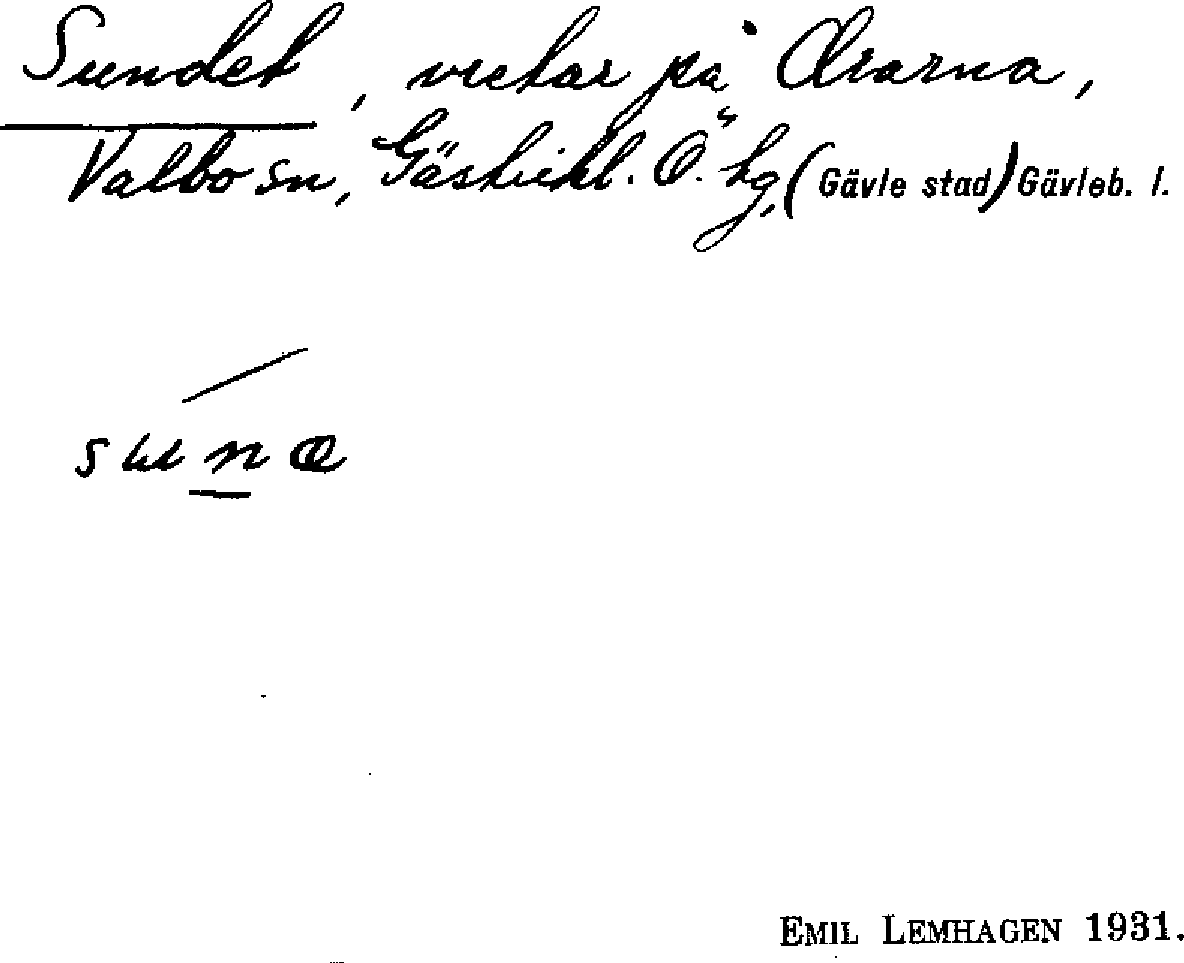 Sundet, vretar på Orarna,
Valbo sn, Gästrikl. Ö. hg, (Gävle stad) Gävleb. l.
EMIL LEMHAGEN 1931.